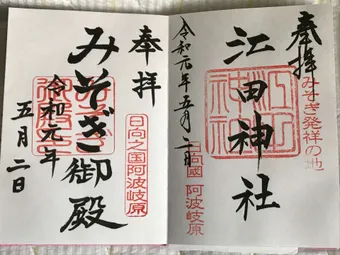 奉拝
みそぎ発祥の地
江田神社
日向國 阿波岐原
令和元年五月二日
奉拝
日向之国阿波岐原
みそぎ御殿
令和元年
五月二日